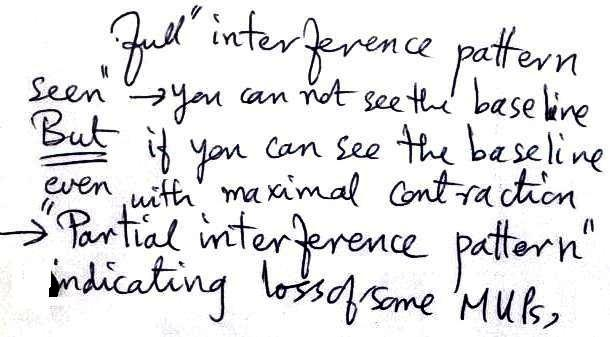 "full" interference pattern
seen" → you can not see the baseline
But if you can see the baseline
even with maximal contraction
→ "Partial interference pattern"
indicating loss of some MUPs,